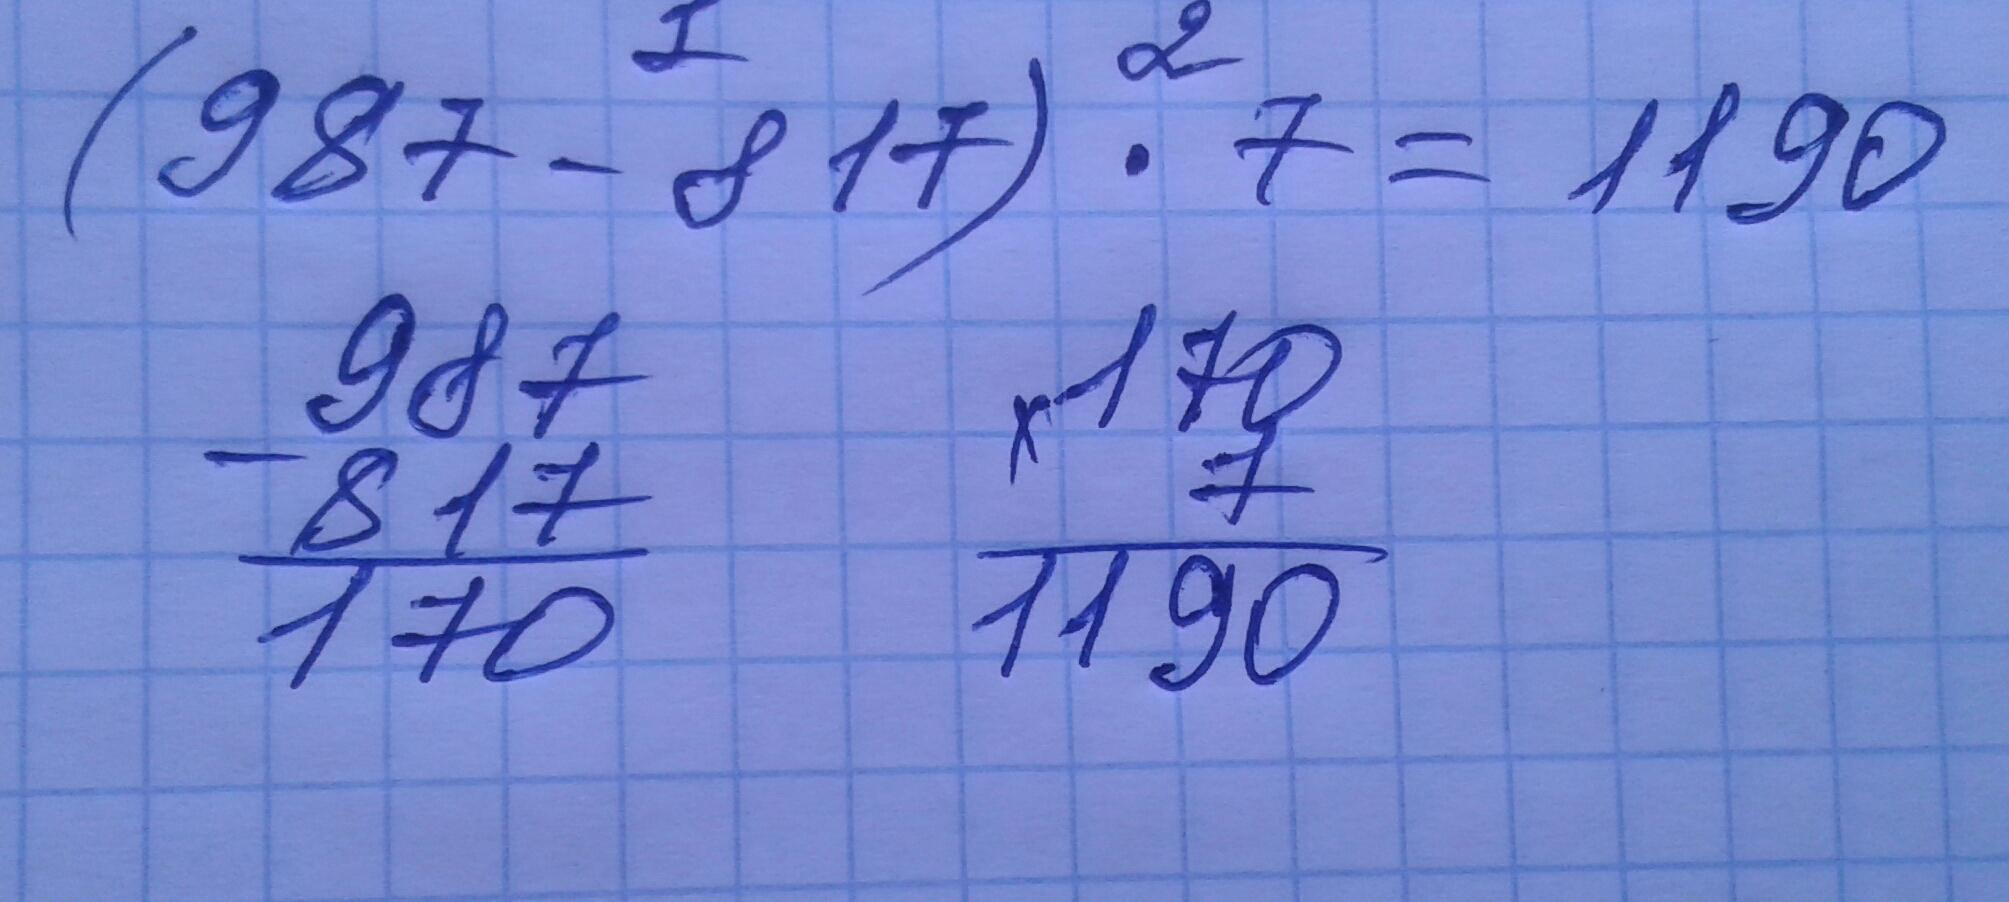 I 2
(987 - 817) · 7 = 1190
987 × 170
- 817 7
170 1190